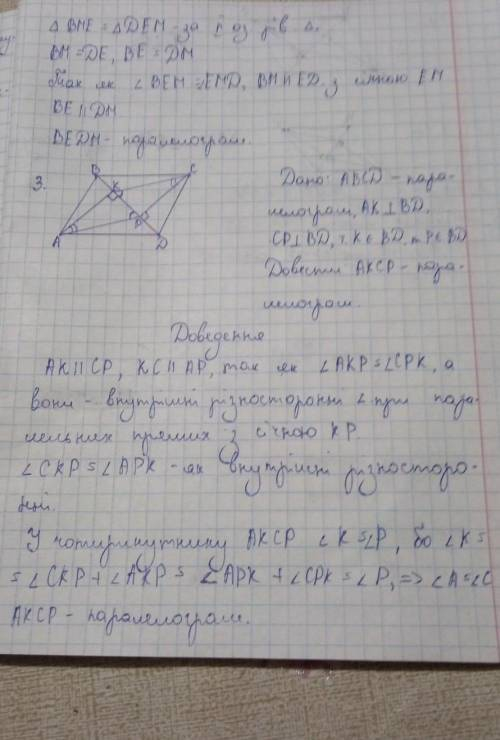 Δ BME = Δ DEM - за
BM = DE, BE = DM
Так як ∠ BEM = EMD, BM || ED з січною EM
BE || DM
BEDM - паралелограм.
3.
B
C
K
P
A
D
Дано: ABCD - пара-
лелограм, AK ⊥ BD,
CP ⊥ BD, т. K ∈ BD, т. P ∈ BD
Довести AKCP - пара-
лелограм.
Доведення
AK || CP, KC || AP, так як ∠AKP = ∠CPK, а
вони - внутрішні різносторонні ∠ при пара-
лельних прямих з січною KP.
∠CKP = ∠APK - як внутрішні різносторо-
нні.
У чотирикутнику AKCP ∠K = ∠P, бо ∠K =
= ∠CKP + ∠AKP = ∠APK + ∠CPK = ∠P, => ∠A = ∠C
AKCP - паралелограм.